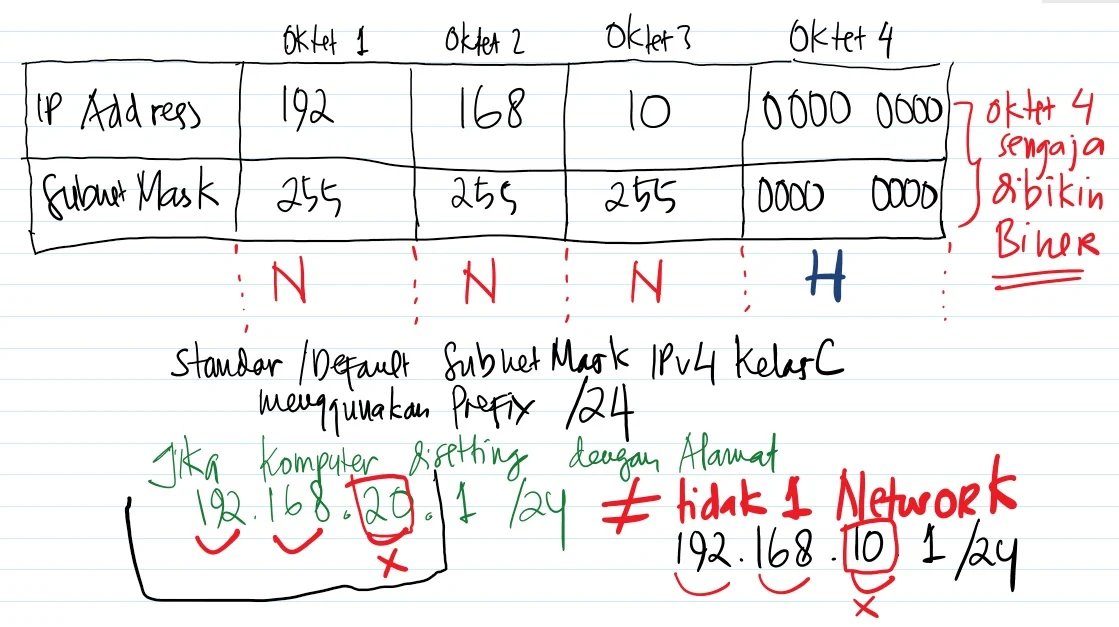 Oktet 1 Oktet 2 Oktet 3 Oktet 4
IP Address 192 168 10 0000 0000
Subnet Mask 255 255 255 0000 0000
oktet 4
sengaja
dibikin
Biner
N N N H
Standar /Default Subnet Mask IPv4 Kelas C
menggunakan Prefix /24
Jika Komputer disetting dengan Alamat
192.168.20.1 /24 ≠ tidak 1 Network
x
192.168.10 1 /24
x